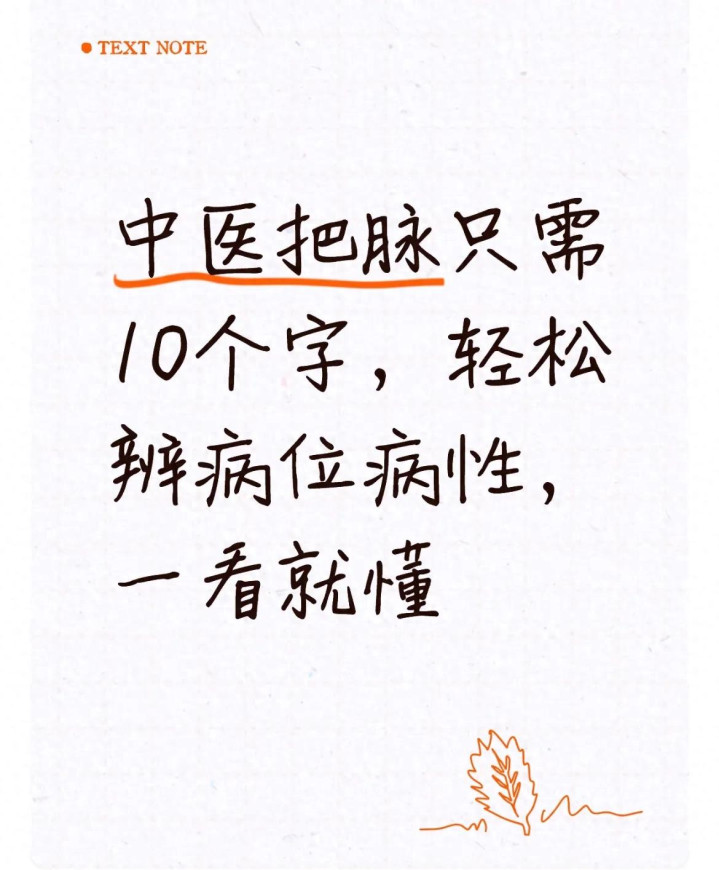 TEXT NOTE
中医把脉只需
10个字，轻松
辨病位病性，
一看就懂